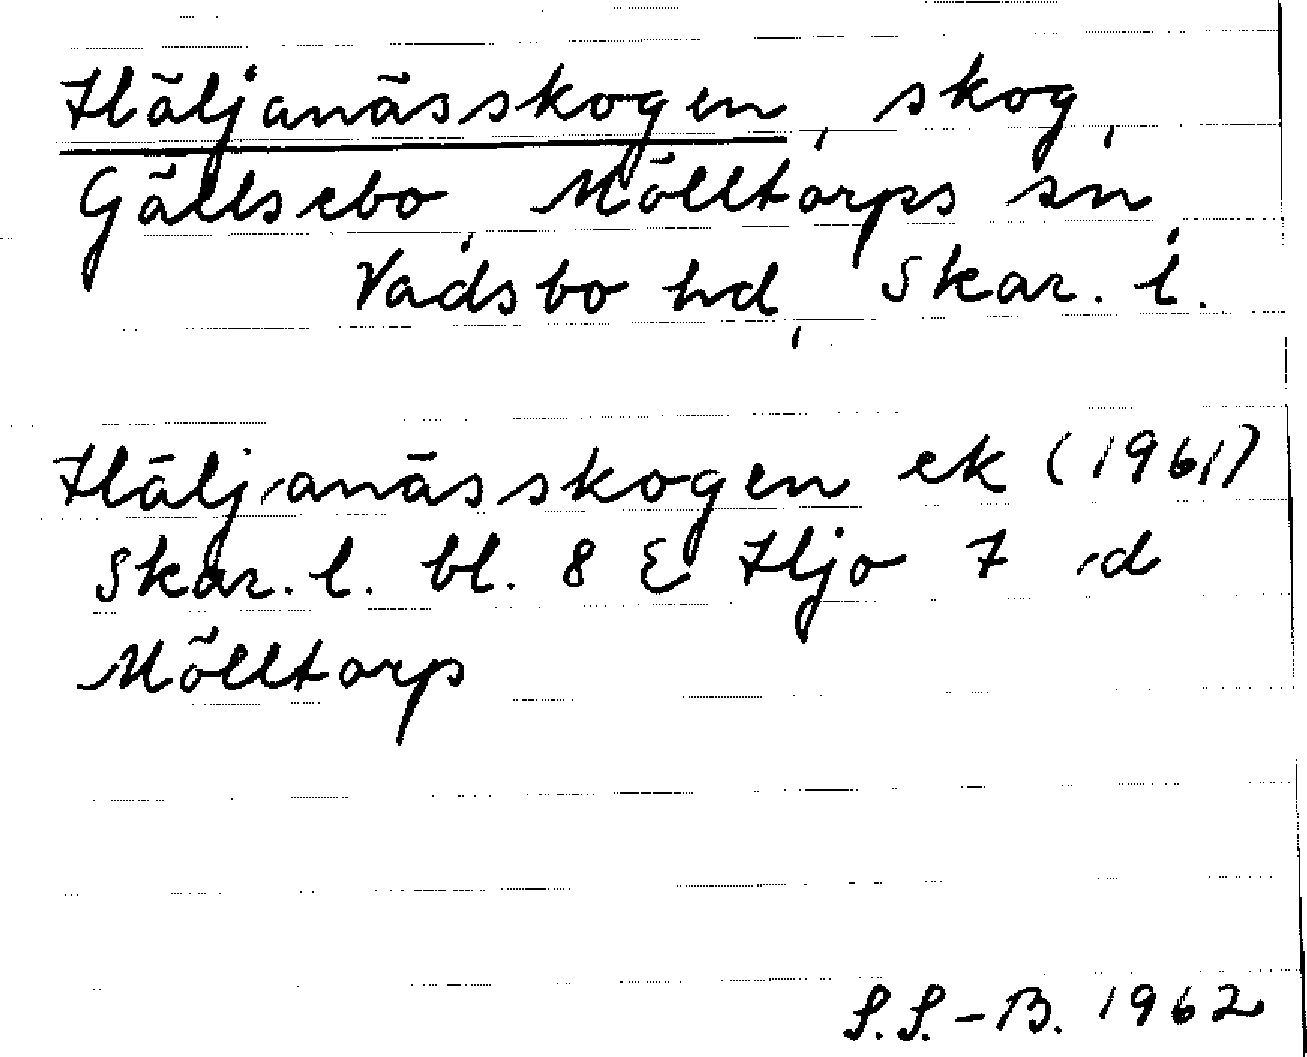 Häljanässkogen, skog,
Gällsebo, Mölltorps sn,
Vadsbo hd, Skar. l.
Häljanässkogen ek (1961)
Skar. l. bl. 8 E Hjo 7 d
Mölltorp
S.S.-B. 1962